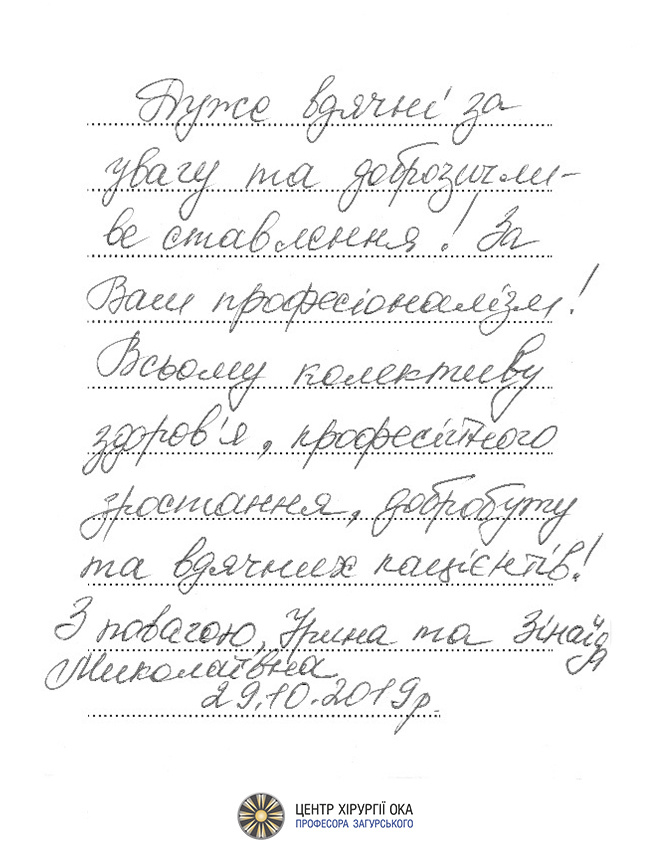 Дуже вдячні за
увагу та доброзичли-
ве ставлення! За
Ваш професіоналізм!
Всьому колективу
здоров'я, професійного
зростання, добробуту
та вдячних пацієнтів!
З повагою, Ірина та Зінаїда
Миколаївна
29.10.2019р.
ЦЕНТР ХІРУРГІЇ ОКА
ПРОФЕСОРА ЗАГУРСЬКОГО